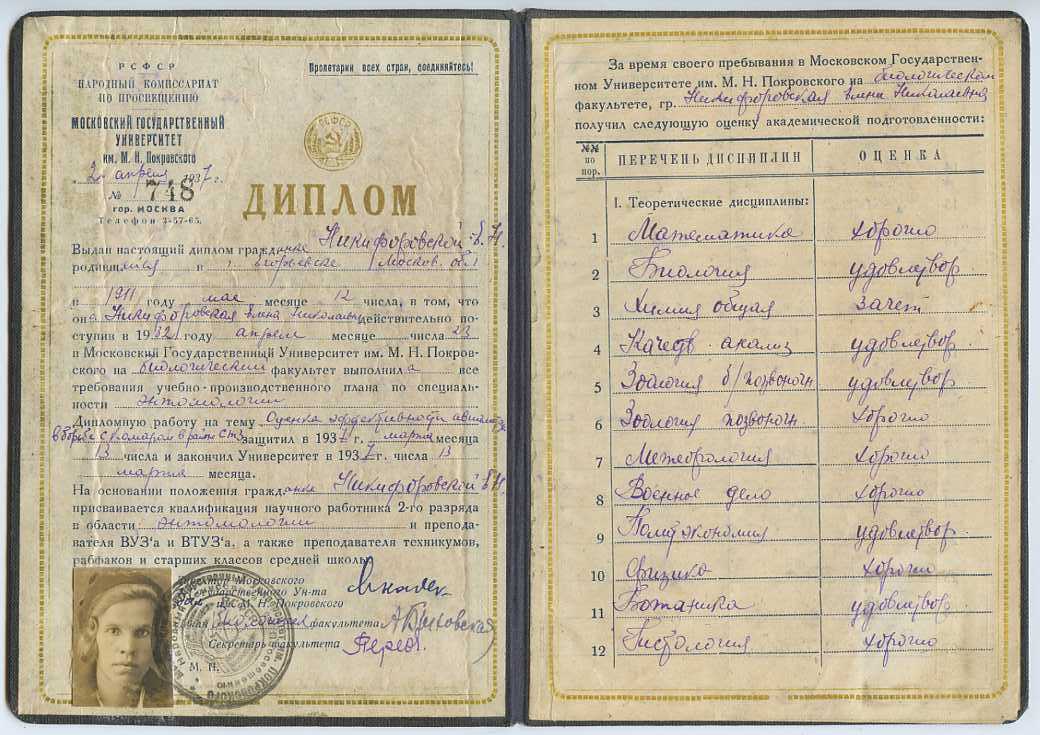 РСФСР
НАРОДНЫЙ КОМИССАРИАТ
ПО ПРОСВЕЩЕНИЮ
МОСКОВСКИЙ ГОСУДАРСТВЕННЫЙ
УНИВЕРСИТЕТ
им. М. Н. Покровского
2 апреля 1937 г.
№ 748
гор. МОСКВА
Телефон 3-57-65.
Пролетарии всех стран, соединяйтесь!
РСФСР
ДИПЛОМ
Выдан настоящий диплом гражданке Никифоровской Е. Н
родившейся в г. Егорьевске Москов. обл
в 1911 году мае месяце 12 числа, в том, что
она Никифоровская Елена Николаевна действительно по-
ступив в 1932 году апреле месяце числа 23
в Московский Государственный Университет им. М. Н. Покров-
ского на биологический факультет выполнила все
требования учебно-производственного плана по специаль-
ности энтомологии
Дипломную работу на тему Оценка эффективности
в борьбе с комаром защитил в 1937 г. марта месяца
13 числа и закончил Университет в 1937 г. числа 13
марта месяца.
На основании положения гражданке Никифоровской Е. Н.
присваивается квалификация научного работника 2-го разряда
в области энтомологии и препода-
вателя ВУЗ'а и ВТУЗ'а, а также преподавателя техникумов,
рабфаков и старших классов средней школы.
Директор Московского
Государственного Ун-та
им. М. Н. Покровского
Декан биологическ факультета
Секретарь факультета
М. П.
За время своего пребывания в Московском Государствен-
ном Университете им. М. Н. Покровского на биологическом
факультете, гр. Никифоровская Елена Николаевна
получил следующую оценку академической подготовленности:
№№ по пор. ПЕРЕЧЕНЬ ДИСЦИПЛИН ОЦЕНКА
I. Теоретические дисциплины:
1 Математика хорошо
2 Биология удовлетвор
3 Химия общая зачет
4 Качеств. анализ удовлетвор.
5 Зоология б/позвоночн удовлетвор
6 Зоология позвоночн хорошо
7 Метеорология хорошо
8 Военное дело хорошо
9 Политэкономия удовлетвор.
10 Физика хорошо
11 Ботаника удовлетвор
12 Гистология хорошо